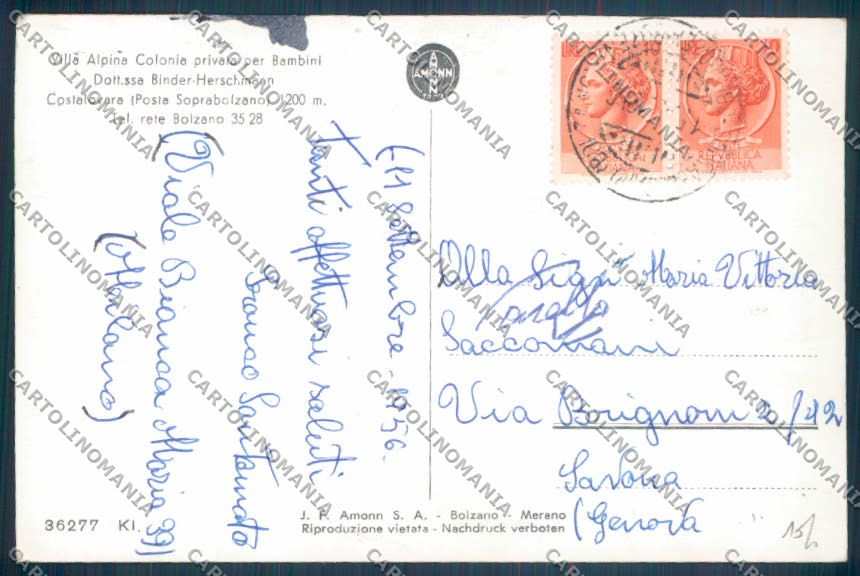 Villa Alpina Colonia privata per Bambini
Dott.ssa Binder-Herschmann
Costalovara (Posta Soprabolzano) 1200 m.
Tel. rete Bolzano 35 28
AMONN
LIRE 10
REPUBBLICA
ITALIANA
(11 Settembre - 1956.
Tanti affettuosi saluti
Franco
(Viale Bianca Maria 39)
(Milano)
Alla Sig.na Maria Vittoria
Saccomani
Via Borignoni 2/12
Savona
(Genova
36277 Kl.
J. F. Amonn S. A. - Bolzano - Merano
Riproduzione vietata - Nachdruck verboten
CARTOLINOMANIA